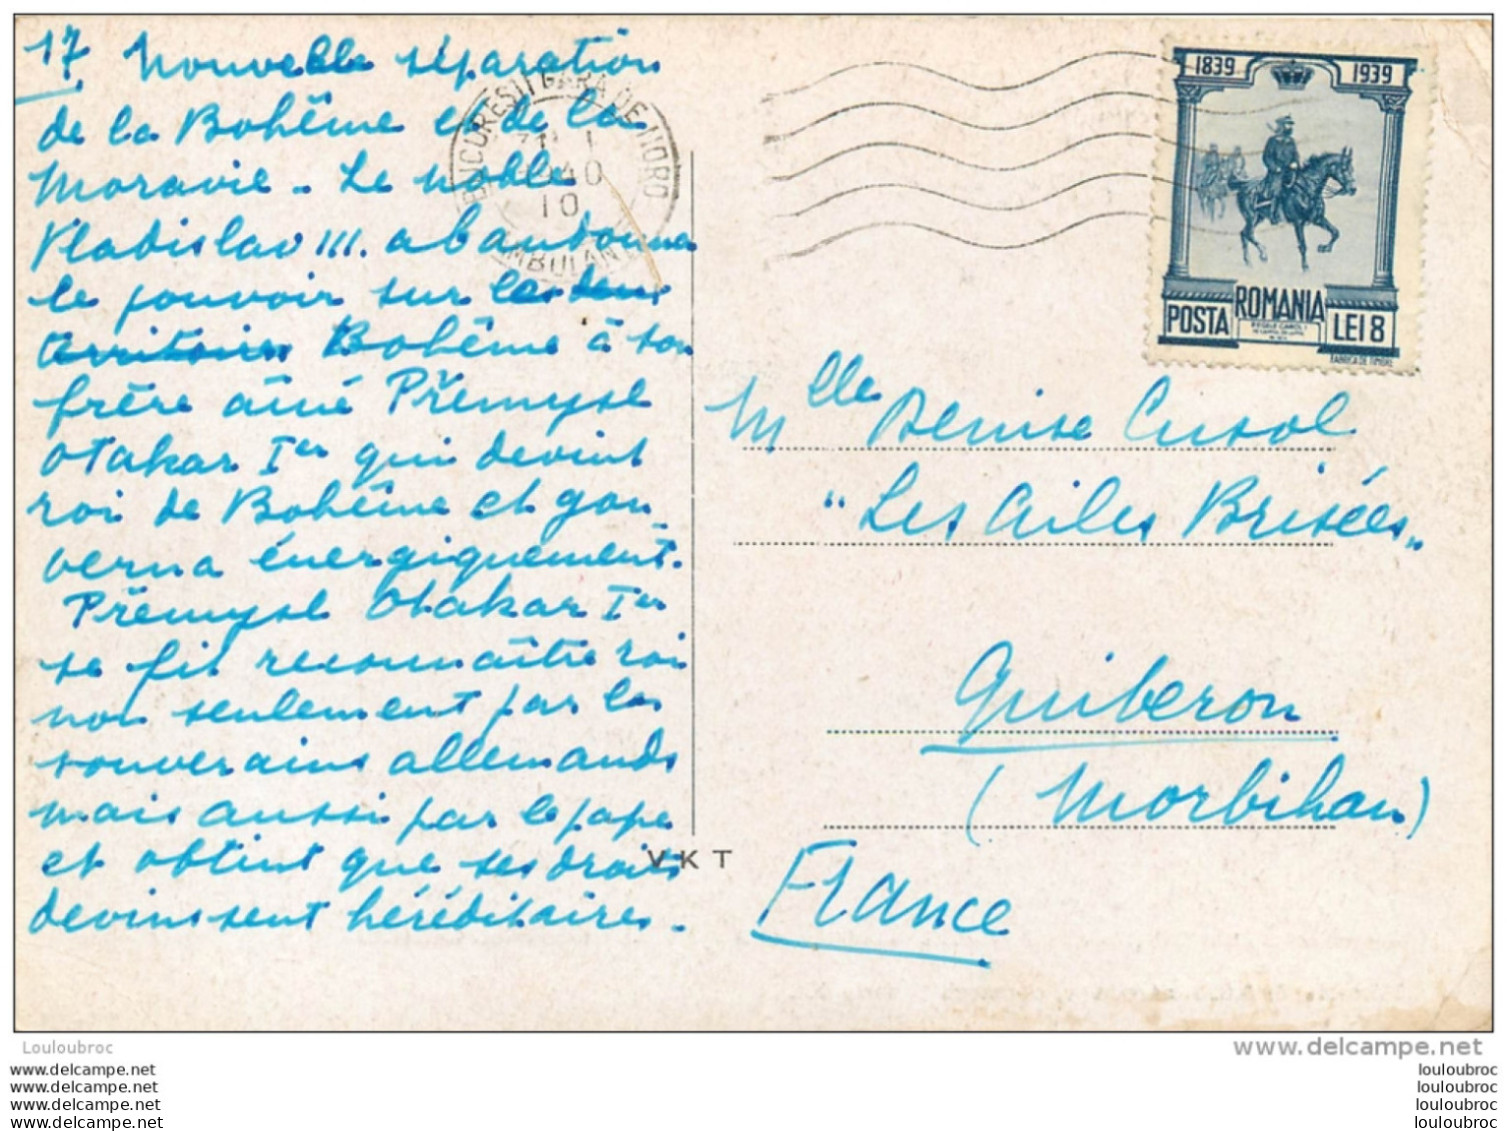 17 Nouvelle séparation
de la Bohême et de la
Moravie. Le noble
Vladislav III. abandonna
le pouvoir sur les deux
territoires Bohême à son
frère aîné Přemysl
Otakar Ier qui devint
roi de Bohême et gou-
verna énergiquement.
Přemysl Otakar Ier
se fit reconnaître roi
non seulement par les
souverains allemands
mais aussi par le pape
et obtint que ses droits
devinssent héréditaires.
BUCUREȘTI GARA DE NORD
1940
10
AMBULANT
1839 1939
POSTA ROMANIA LEI 8
REGELE CAROL I
FABRICA DE TIMBRE
Mlle Denise Cusol
"Les Ailes Brisées"
Quiberon
(Morbihan)
France
VKT
Louloubroc
www.delcampe.net
www.delcampe.net
www.delcampe.net
www.delcampe.net
www.delcampe.net
louloubroc
louloubroc
louloubroc
louloubroc